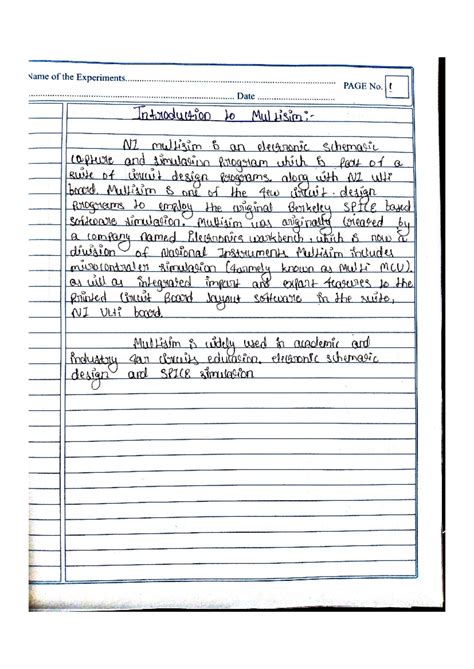 Name of the Experiments
PAGE No. 1
Date
Introduction to Multisim:-
NI multisim is an electronic schematic
capture and simulation Program which is part of a
suite of circuit design programs, along with NI Ulti
board. Multisim is one of the few circuit-design
Programs to employ the original Berkeley SPICE based
software simulation. Multisim was originally created by
a company named Electronics workbench, which is now a
division of National Instruments Multisim includes
microcontroler simulation (formely known as Multi MCU).
as will as integrated import and export features to the
Printed Circuit Board layout software in the suite,
NI Ulti board.
Multisim is widely used in academic and
industry for circuits education, electronic schematic
design and SPICE simulation